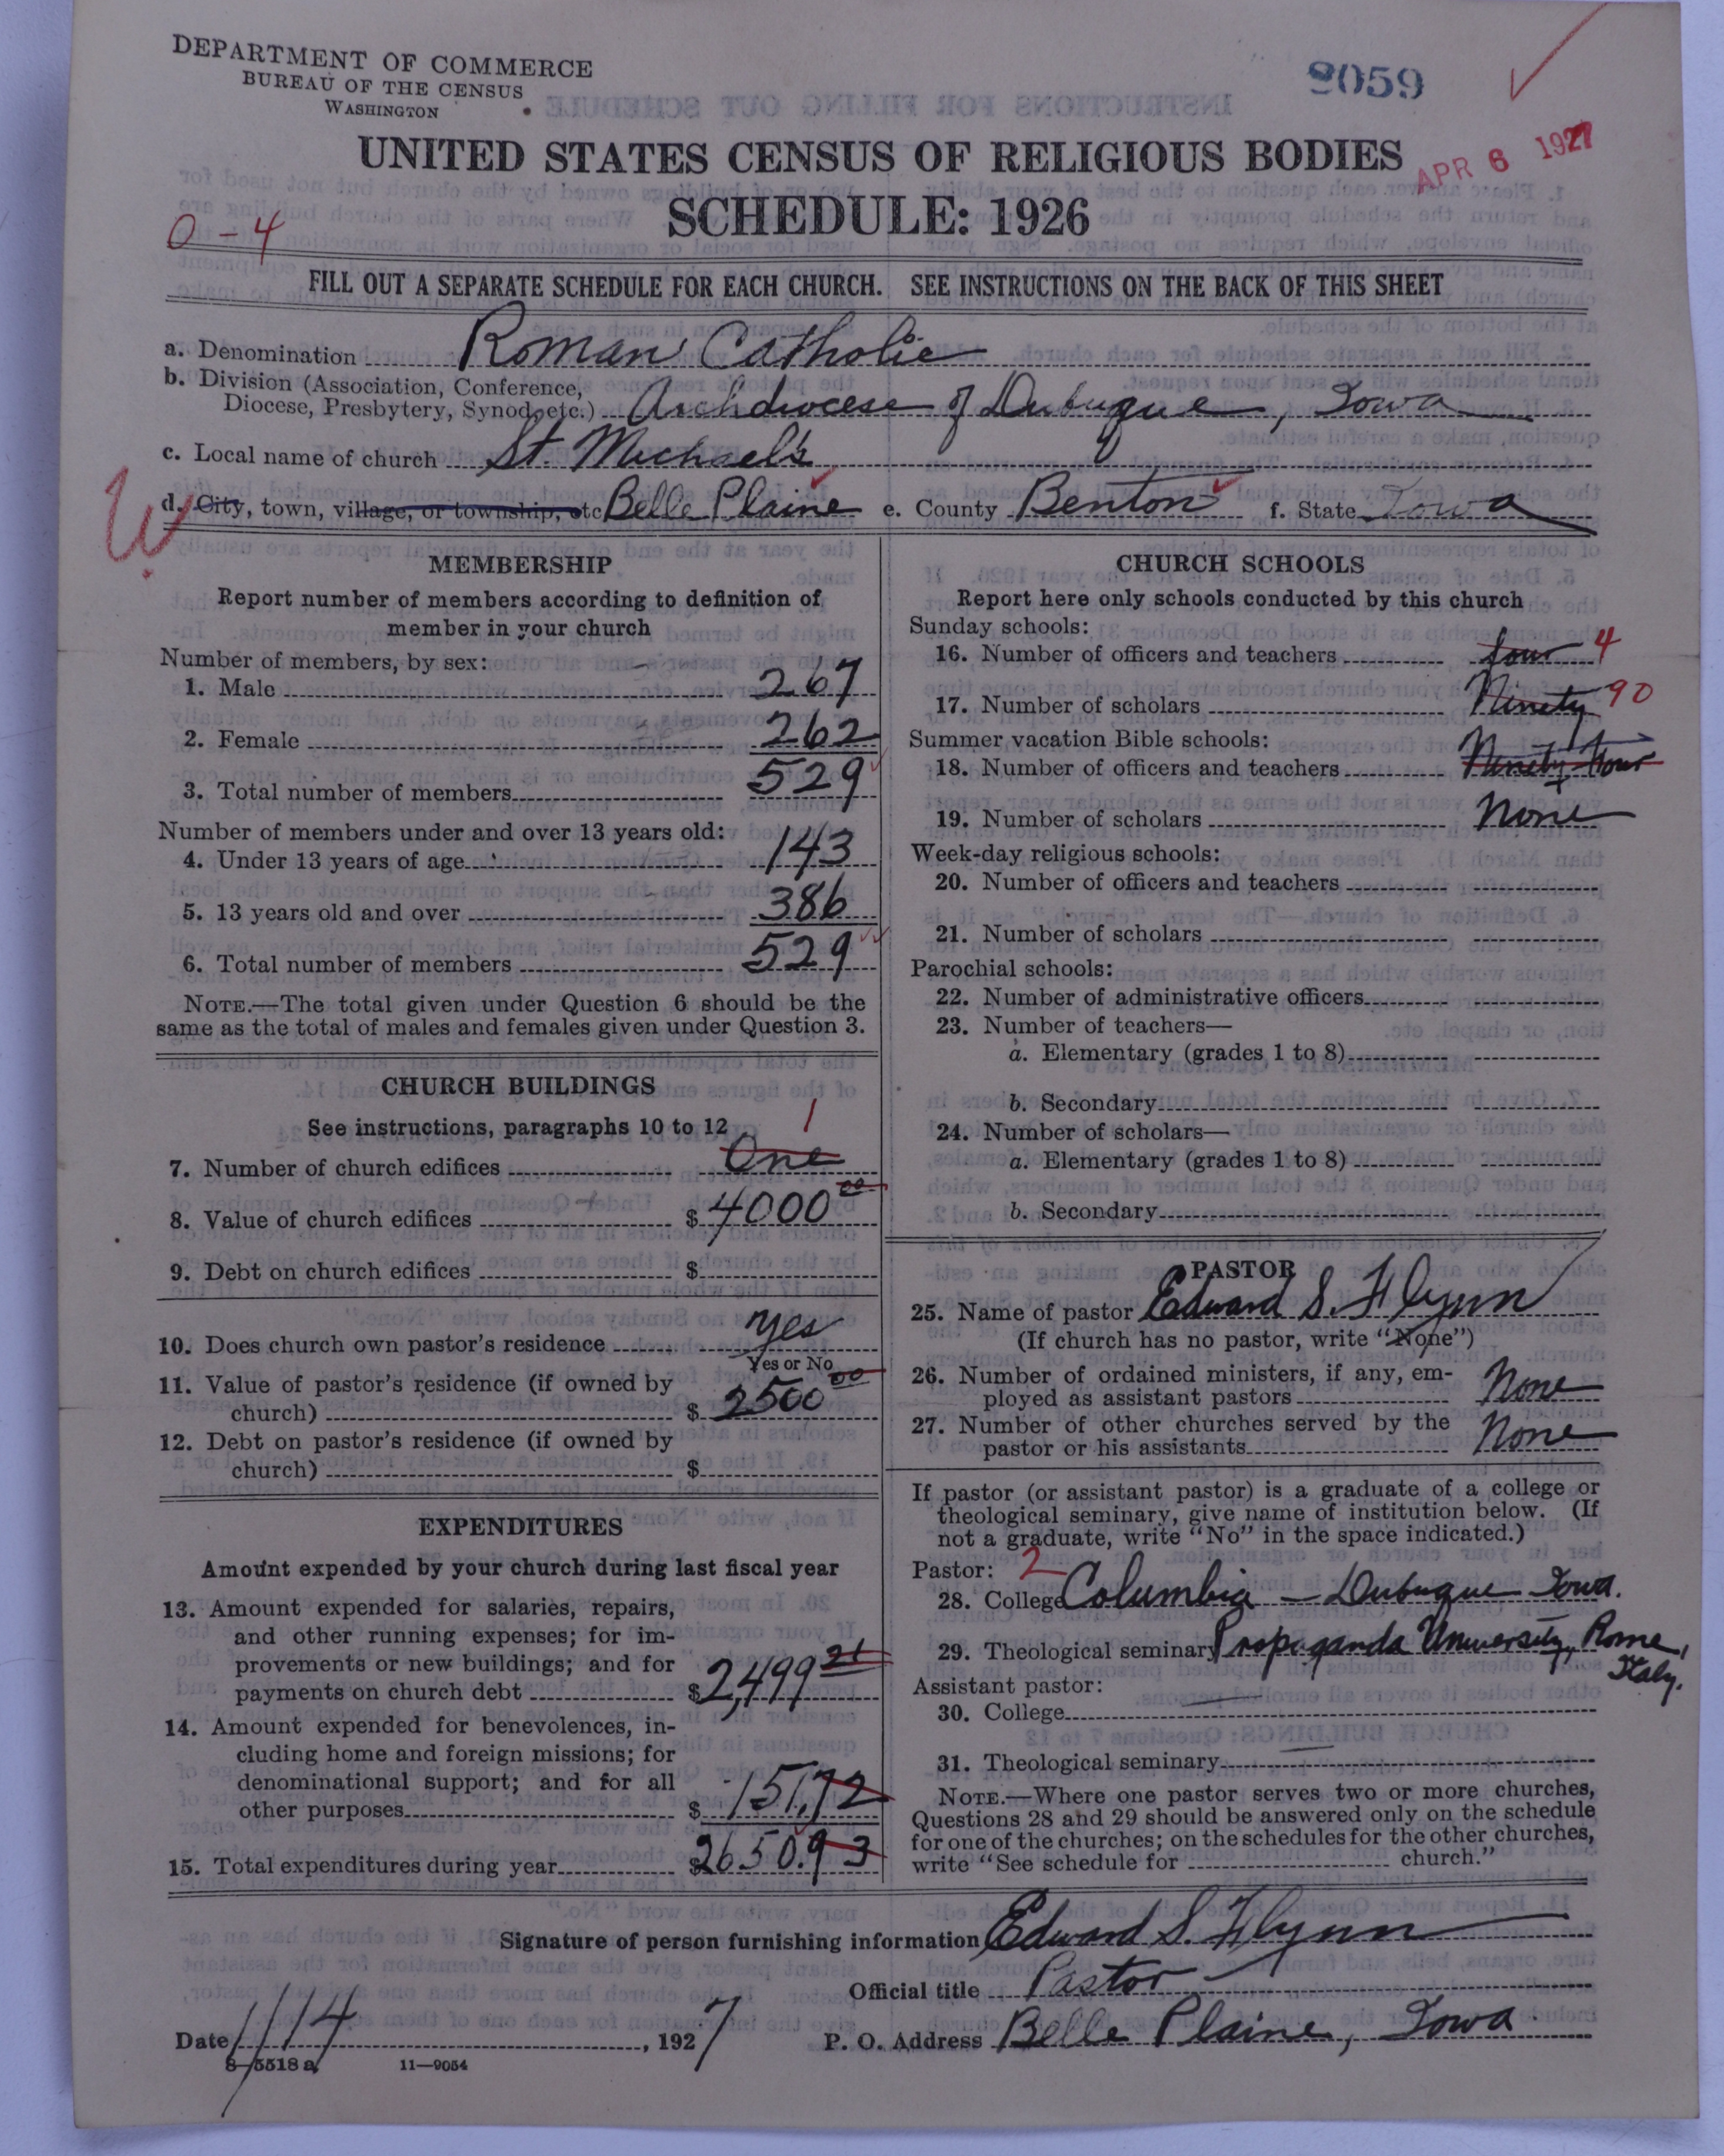 DEPARTMENT OF COMMERCE
BUREAU OF THE CENSUS
WASHINGTON
8059
UNITED STATES CENSUS OF RELIGIOUS BODIES
APR 6 1927
SCHEDULE: 1926
0-4
FILL OUT A SEPARATE SCHEDULE FOR EACH CHURCH. SEE INSTRUCTIONS ON THE BACK OF THIS SHEET
a. Denomination Roman Catholic
b. Division (Association, Conference,
Diocese, Presbytery, Synod, etc.) Archdiocese of Dubuque, Iowa
c. Local name of church St. Michael's
W
d. City, town, village, or township, etc Belle Plaine e. County Benton f. State Iowa
MEMBERSHIP
Report number of members according to definition of
member in your church
Number of members, by sex:
1. Male 267
2. Female 262
3. Total number of members 529
Number of members under and over 13 years old:
4. Under 13 years of age 143
5. 13 years old and over 386
6. Total number of members 529
NOTE.—The total given under Question 6 should be the
same as the total of males and females given under Question 3.
CHURCH BUILDINGS
See instructions, paragraphs 10 to 12
7. Number of church edifices One 1
8. Value of church edifices $ 4000 00
9. Debt on church edifices $
10. Does church own pastor's residence Yes
Yes or No
11. Value of pastor's residence (if owned by
church) $ 2500 00
12. Debt on pastor's residence (if owned by
church) $
EXPENDITURES
Amount expended by your church during last fiscal year
13. Amount expended for salaries, repairs,
and other running expenses; for im-
provements or new buildings; and for
payments on church debt $ 2,499 21
14. Amount expended for benevolences, in-
cluding home and foreign missions; for
denominational support; and for all
other purposes $ 151.72
15. Total expenditures during year $ 2650.93
CHURCH SCHOOLS
Report here only schools conducted by this church
Sunday schools:
16. Number of officers and teachers four 4
17. Number of scholars Ninety 90
Summer vacation Bible schools:
18. Number of officers and teachers Ninety-four
19. Number of scholars None
Week-day religious schools:
20. Number of officers and teachers
21. Number of scholars
Parochial schools:
22. Number of administrative officers
23. Number of teachers—
a. Elementary (grades 1 to 8)
b. Secondary
24. Number of scholars—
a. Elementary (grades 1 to 8)
b. Secondary
PASTOR
25. Name of pastor Edward S. Flynn
(If church has no pastor, write "None")
26. Number of ordained ministers, if any, em-
ployed as assistant pastors None
27. Number of other churches served by the
pastor or his assistants None
If pastor (or assistant pastor) is a graduate of a college or
theological seminary, give name of institution below. (If
not a graduate, write "No" in the space indicated.)
Pastor: 2
28. College Columbia - Dubuque Iowa.
29. Theological seminary Propaganda University, Rome,
Italy.
Assistant pastor:
30. College
31. Theological seminary
NOTE.—Where one pastor serves two or more churches,
Questions 28 and 29 should be answered only on the schedule
for one of the churches; on the schedules for the other churches,
write "See schedule for church."
Signature of person furnishing information Edward S. Flynn
Official title Pastor
Date 1/14, 1927 P. O. Address Belle Plaine, Iowa
8-5518 a 11-9054